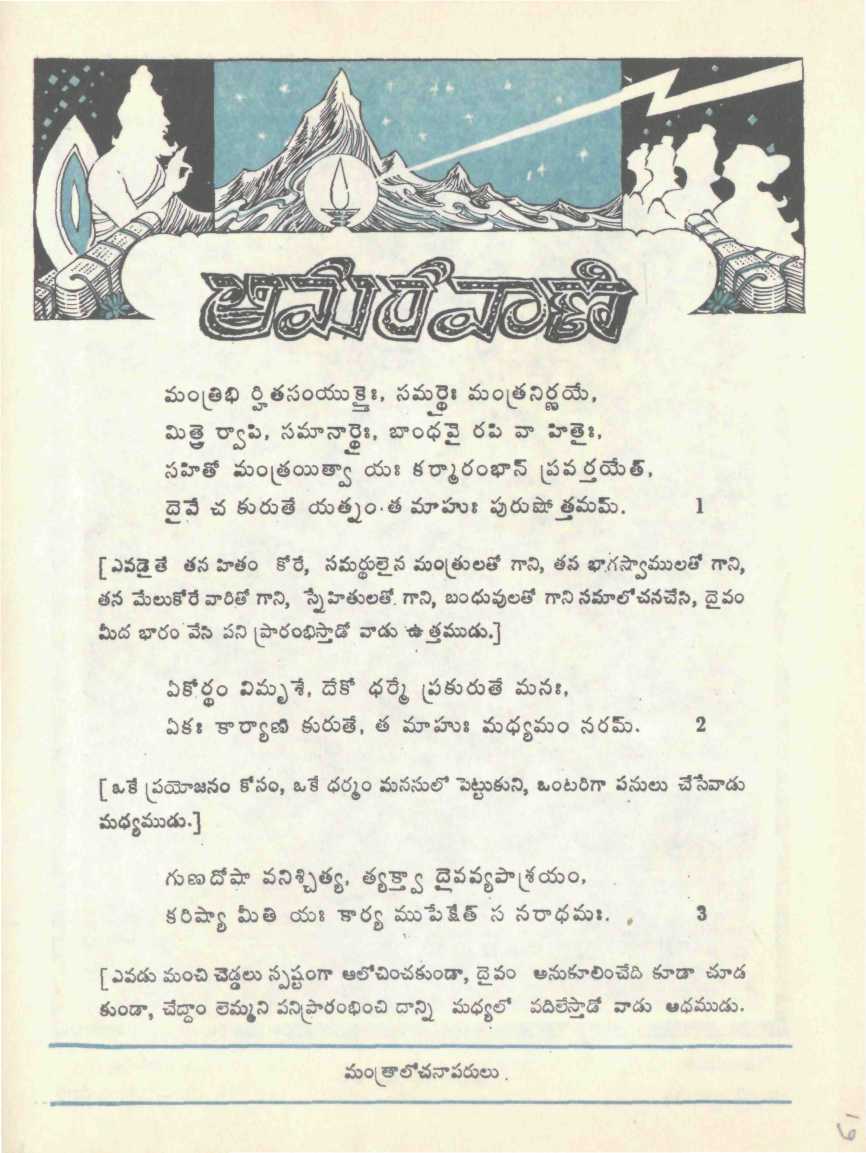 అమరవాణి
మంత్రిభి ర్హితసంయుక్తైః, సమర్థైః మంత్రనిర్ణయే,
మిత్రై ర్వాపి, సమానార్థైః, బాంధవై రపి వా హితైః,
సహితో మంత్రయిత్వా యః కర్మారంభాన్ ప్రవర్తయేత్,
దైవే చ కురుతే యత్నం త మాహుః పురుషోత్తమమ్. 1
[ఎవడైతే తన హితం కోరే, సమర్థులైన మంత్రులతో గాని, తన భాగస్వాములతో గాని,
తన మేలుకోరే వారితో గాని, స్నేహితులతో గాని, బంధువులతో గాని సమాలోచనచేసి, దైవం
మీద భారం వేసి పని ప్రారంభిస్తాడో వాడు ఉత్తముడు.]
ఏకోర్థం విమృశే, దేకో ధర్మే ప్రకురుతే మనః,
ఏకః కార్యాణి కురుతే, త మాహుః మధ్యమం నరమ్. 2
[ఒకే ప్రయోజనం కోసం, ఒకే ధర్మం మనసులో పెట్టుకుని, ఒంటరిగా పనులు చేసేవాడు
మధ్యముడు.]
గుణదోషా వనిశ్చిత్య, త్యక్త్వా దైవవ్యపాశ్రయం,
కరిష్యా మీతి యః కార్య ముపేక్షేత్ స నరాధమః. 3
[ఎవడు మంచి చెడ్డలు స్పష్టంగా ఆలోచించకుండా, దైవం అనుకూలించేది కూడా చూడ
కుండా, చేద్దాం లెమ్మని పనిప్రారంభించి దాన్ని మధ్యలో వదిలేస్తాడో వాడు అధముడు.
మంత్రాలోచనాపరులు.